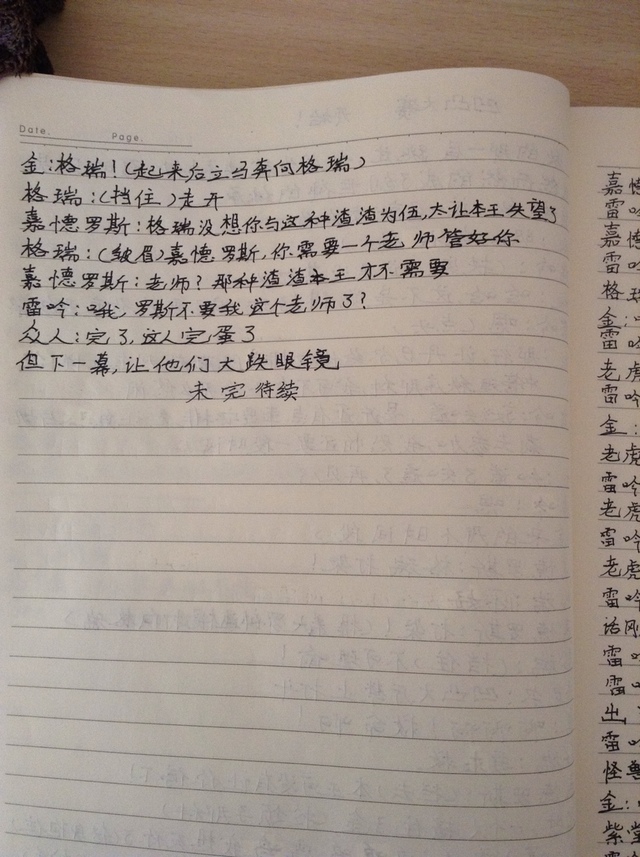 Date.
Page.
金:格瑞!(起来后立马奔向格瑞)
格瑞:(挡住)走开
嘉德罗斯:格瑞没想你与这种渣渣为伍,太让本王失望了
格瑞:(皱眉)嘉德罗斯,你需要一个老师管好你
嘉德罗斯:老师?那种渣渣本王才不需要
雷吟:哦,罗斯不要我这个老师了?
众人:完了,这人完蛋了
但下一幕,让他们大跌眼镜
未完待续
嘉德
雷吟
嘉德
雷吟
格瑞
金:
雷吟
老虎
雷吟
金:
老虎
雷吟
老虎
雷吟
老虎
雷吟
话刚
雷吟
雷吟
出
雷吟
怪兽
金:
紫堂